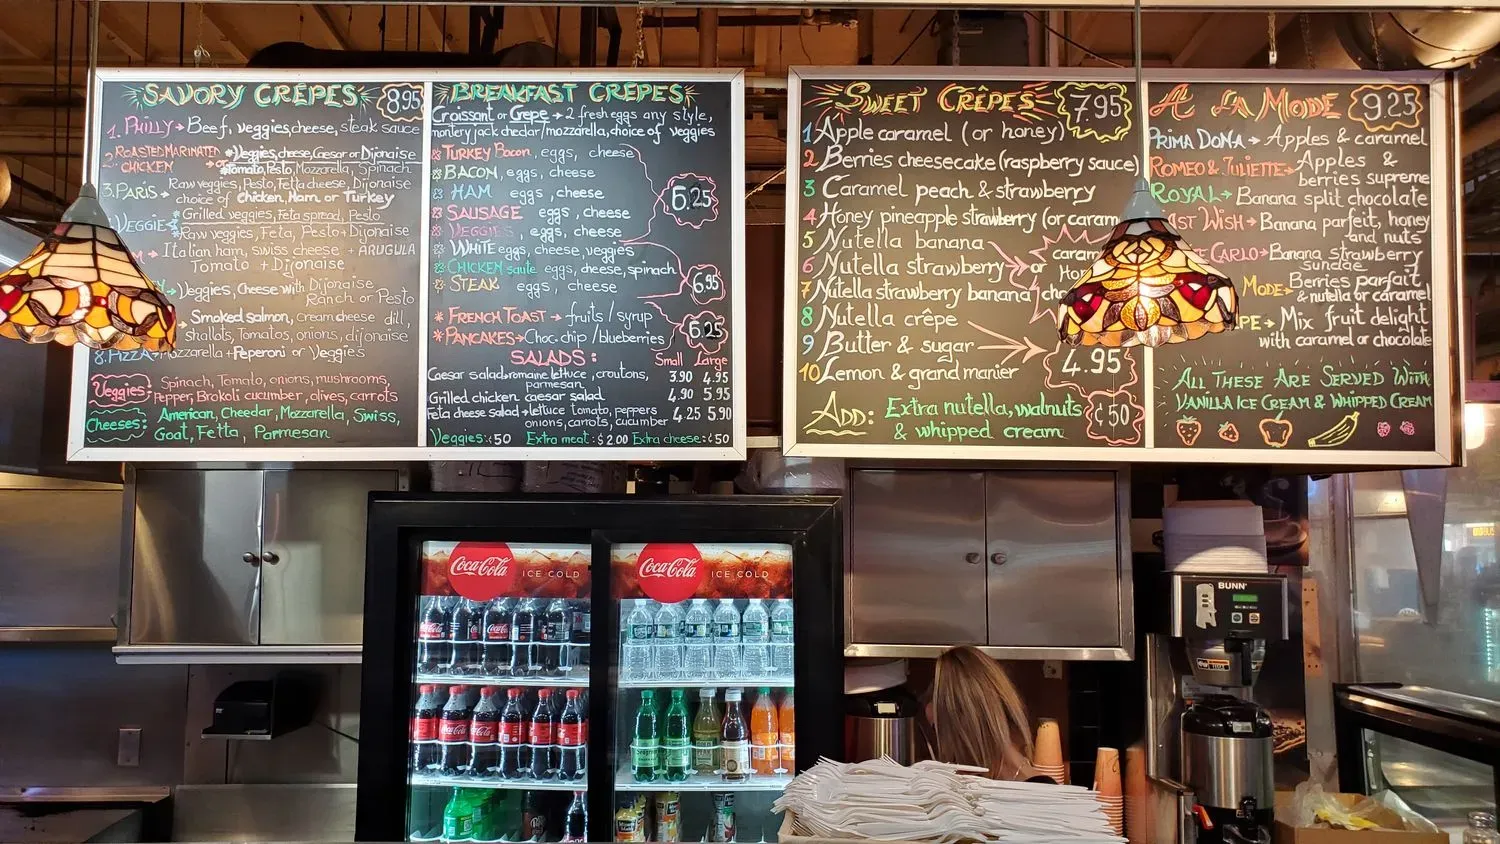 SAVORY CRÊPES 8.95
1. PHILLY → Beef, veggies, cheese, steak sauce
2. ROASTED MARINATED CHICKEN → *Veggies, cheese, Caesar or Dijonaise
or *Tomato, Pesto, Mozzarella, Spinach
3. PARIS → Raw veggies, Pesto, Fetta cheese, Dijonaise
choice of chicken, Ham, or Turkey
VEGGIE *Grilled veggies, Feta spread, Pesto
*Raw veggies, Feta, Pesto + Dijonaise
→ Italian ham, swiss cheese + ARUGULA
Tomato + Dijonaise
→ Veggies, Cheese with Dijonaise
Ranch or Pesto
Smoked salmon, cream cheese dill,
shallots, Tomatos, onions, dijonaise
8. PIZZA → Mozzarella + Peperoni or Veggies
Veggies: Spinach, Tomato, onions, mushrooms,
Pepper, Brokoli cucumber, olives, carrots
Cheeses: American, Cheedar, Mozzarella, Swiss,
Goat, Fetta, Parmesan
BREAKFAST CRÊPES
Croissant or Crepe → 2 fresh eggs any style,
montery jack chedar/mozzarella, choice of veggies
TURKEY Bacon, eggs, cheese
BACON, eggs, cheese
HAM eggs, cheese
SAUSAGE eggs, cheese
VEGGIES, eggs, cheese
6.25
WHITE eggs, cheese, veggies
CHICKEN saute eggs, cheese, spinach
STEAK eggs, cheese
6.95
*FRENCH TOAST → fruits / syrup
*PANCAKES → Choc. chip / blueberries
6.25
SALADS: Small Large
Caesar salad → romaine lettuce, croutons, parmesan 3.90 4.95
Grilled chicken caesar salad 4.90 5.95
Feta cheese salad → lettuce tomato, peppers onions, carrots, cucumber 4.25 5.90
Veggies: ¢50 Extra meat: $2.00 Extra cheese: ¢50
SWEET CRÊPES 7.95
1 Apple caramel (or honey)
2 Berries cheesecake (raspberry sauce)
3 Caramel peach & strawberry
4 Honey pineapple strawberry (or caram
5 Nutella banana
6 Nutella strawberry
7 Nutella strawberry banana
8 Nutella crêpe
9 Butter & sugar
10 Lemon & grand manier
caram
or
4.95
ADD: Extra nutella, walnuts
& whipped cream ¢50
A LA MODE 9.25
PRIMA DONA → Apples & caramel
ROMEO & JULIETTE → Apples &
berries supreme
ROYAL → Banana split chocolate
AST WISH → Banana parfeit, honey
and nuts
E CARLO → Banana strawberry
sundae
MODE → Berries parfait
& nutella or caramel
PE → Mix fruit delight
with caramel or chocolate
ALL THESE ARE SERVED WITH
VANILLA ICE CREAM & WHIPPED CREAM
Coca-Cola ICE COLD
Coca-Cola ICE COLD
BUNN